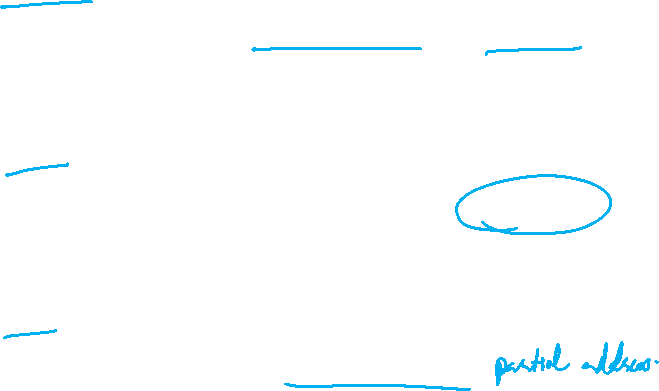 partial address.